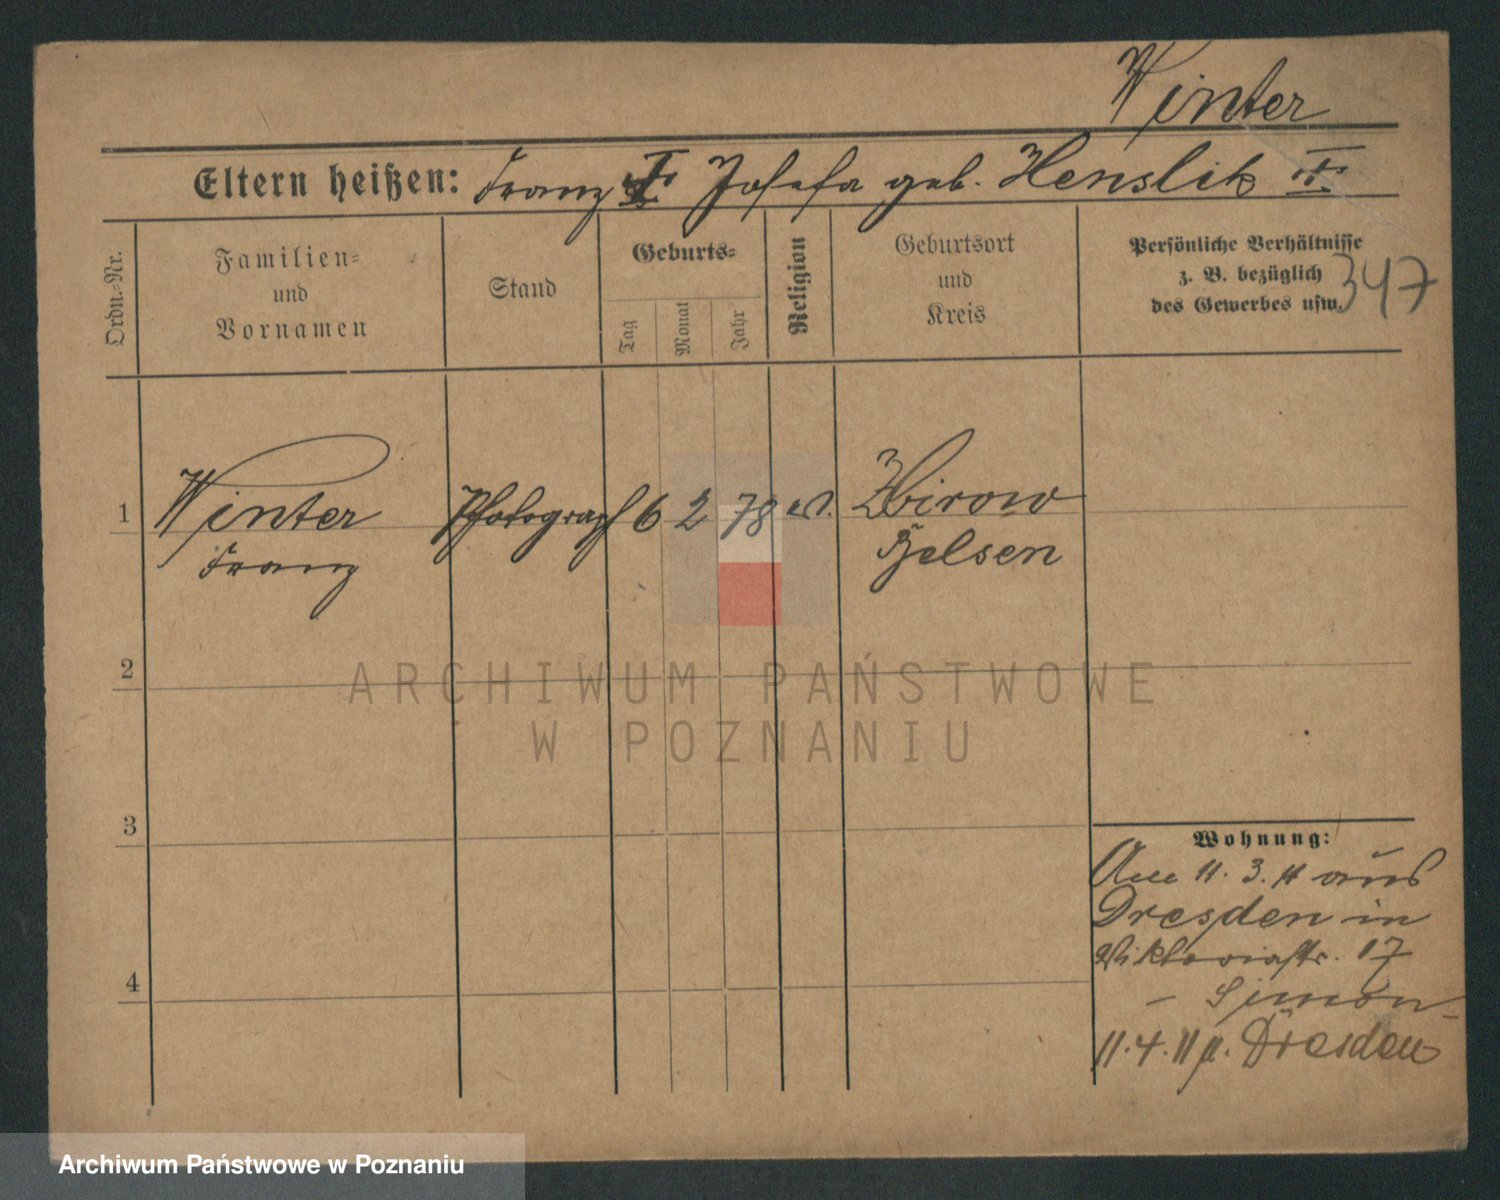 Winter
Eltern heißen: Franz † Josefa geb. Henslik †
Ordn.-Nr.
Familien-
und
Vornamen
Stand
Geburts-
Tag
Monat
Jahr
Religion
Geburtsort
und
Kreis
Persönliche Verhältnisse
z. B. bezüglich
des Gewerbes usw.
347
1 Winter Photograph 6 2 78 ev. Zbirow
Franz
2
3
4
Wohnung:
11. 3. 11 aus
Dresden in
Viktoriastr. 17
- Simon -
11. 4. 11 n. Dresden
ARCHIWUM PAŃSTWOWE
W POZNANIU
Archiwum Państwowe w Poznaniu